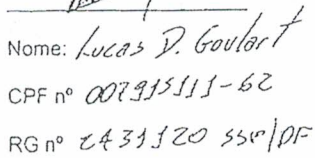 Nome: Lucas D. Goulart
CPF nº 007915111-62
RG nº 2431120 SSP/DF